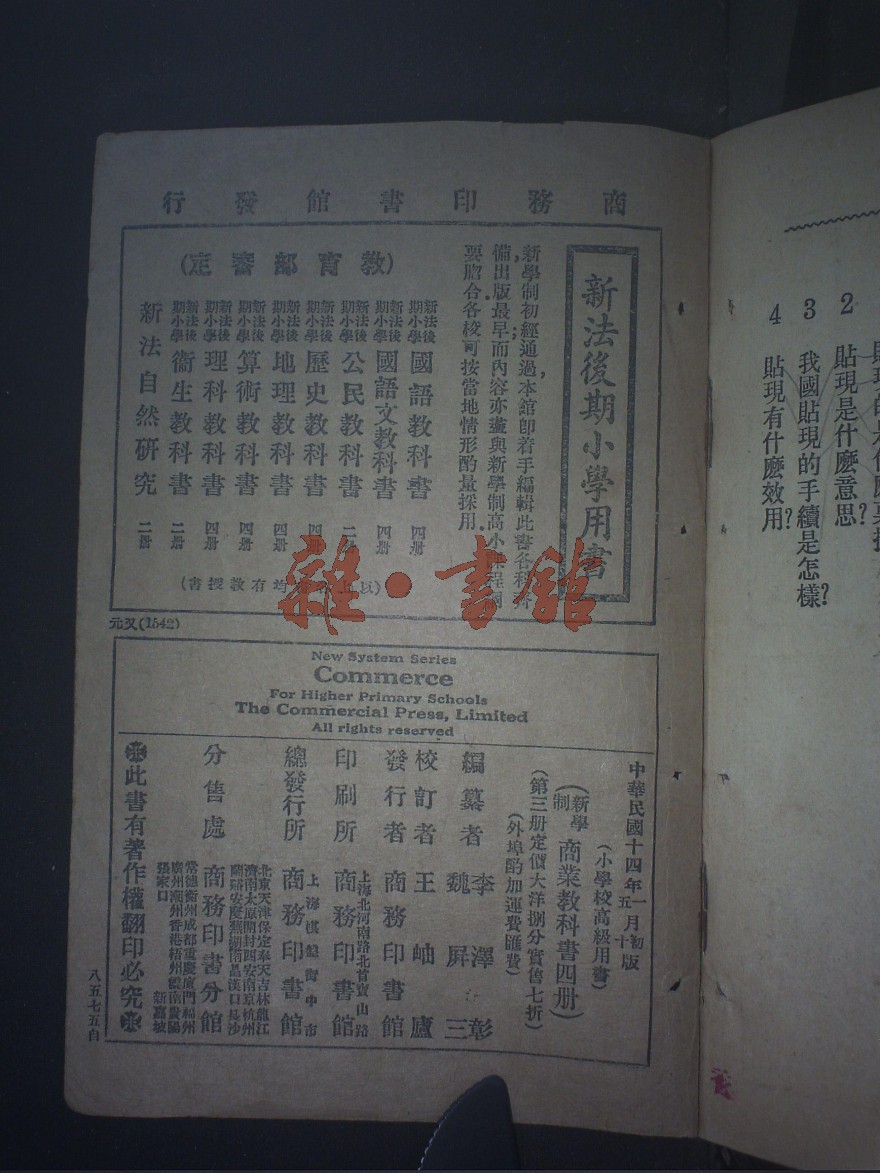 商務印書館發行
新法後期小學用書
新學制初經通過,本館即着手編輯此書各科齊
備出版最早;而內容亦盡與新學制高小課程綱
要脗合各校可按當地情形酌量採用.
(教育部審定)
新法後期小學 國語教科書 四册
新法後期小學 國語文教科書 四册
新法後期小學 公民教科書 二册
新法後期小學 歷史教科書 四册
新法後期小學 地理教科書 四册
新法後期小學 算術教科書 四册
新法後期小學 理科教科書 四册
新法後期小學 衞生教科書 二册
新法自然研究 二册
(以上 均有教授書)
元又(1542)
雜·書館
New System Series
Commerce
For Higher Primary Schools
The Commercial Press, Limited
All rights reserved
中華民國十四年一五月十初版
(小學校高級用書)
(新學制 商業教科書四册)
(第三册定價大洋捌分實售七折)
(外埠酌加運費匯費)
編纂者 李澤彰
魏屏三
校訂者 王岫廬
發行者 商務印書館
上海北河南路北首寶山路
印刷所 商務印書館
上海棋盤街中市
總發行所 商務印書館
北京天津保定奉天吉林龍江
濟南太原開封西安南京杭州
蘭谿安慶蕪湖南昌漢口長沙
分售處 商務印書分館
常德衡州成都重慶廈門福州
廣州潮州香港梧州雲南貴陽
張家口 新嘉坡
此書有著作權翻印必究
八五七五自
2 貼現是什麼意思?
3 我國貼現的手續是怎樣?
4 貼現有什麼效用?